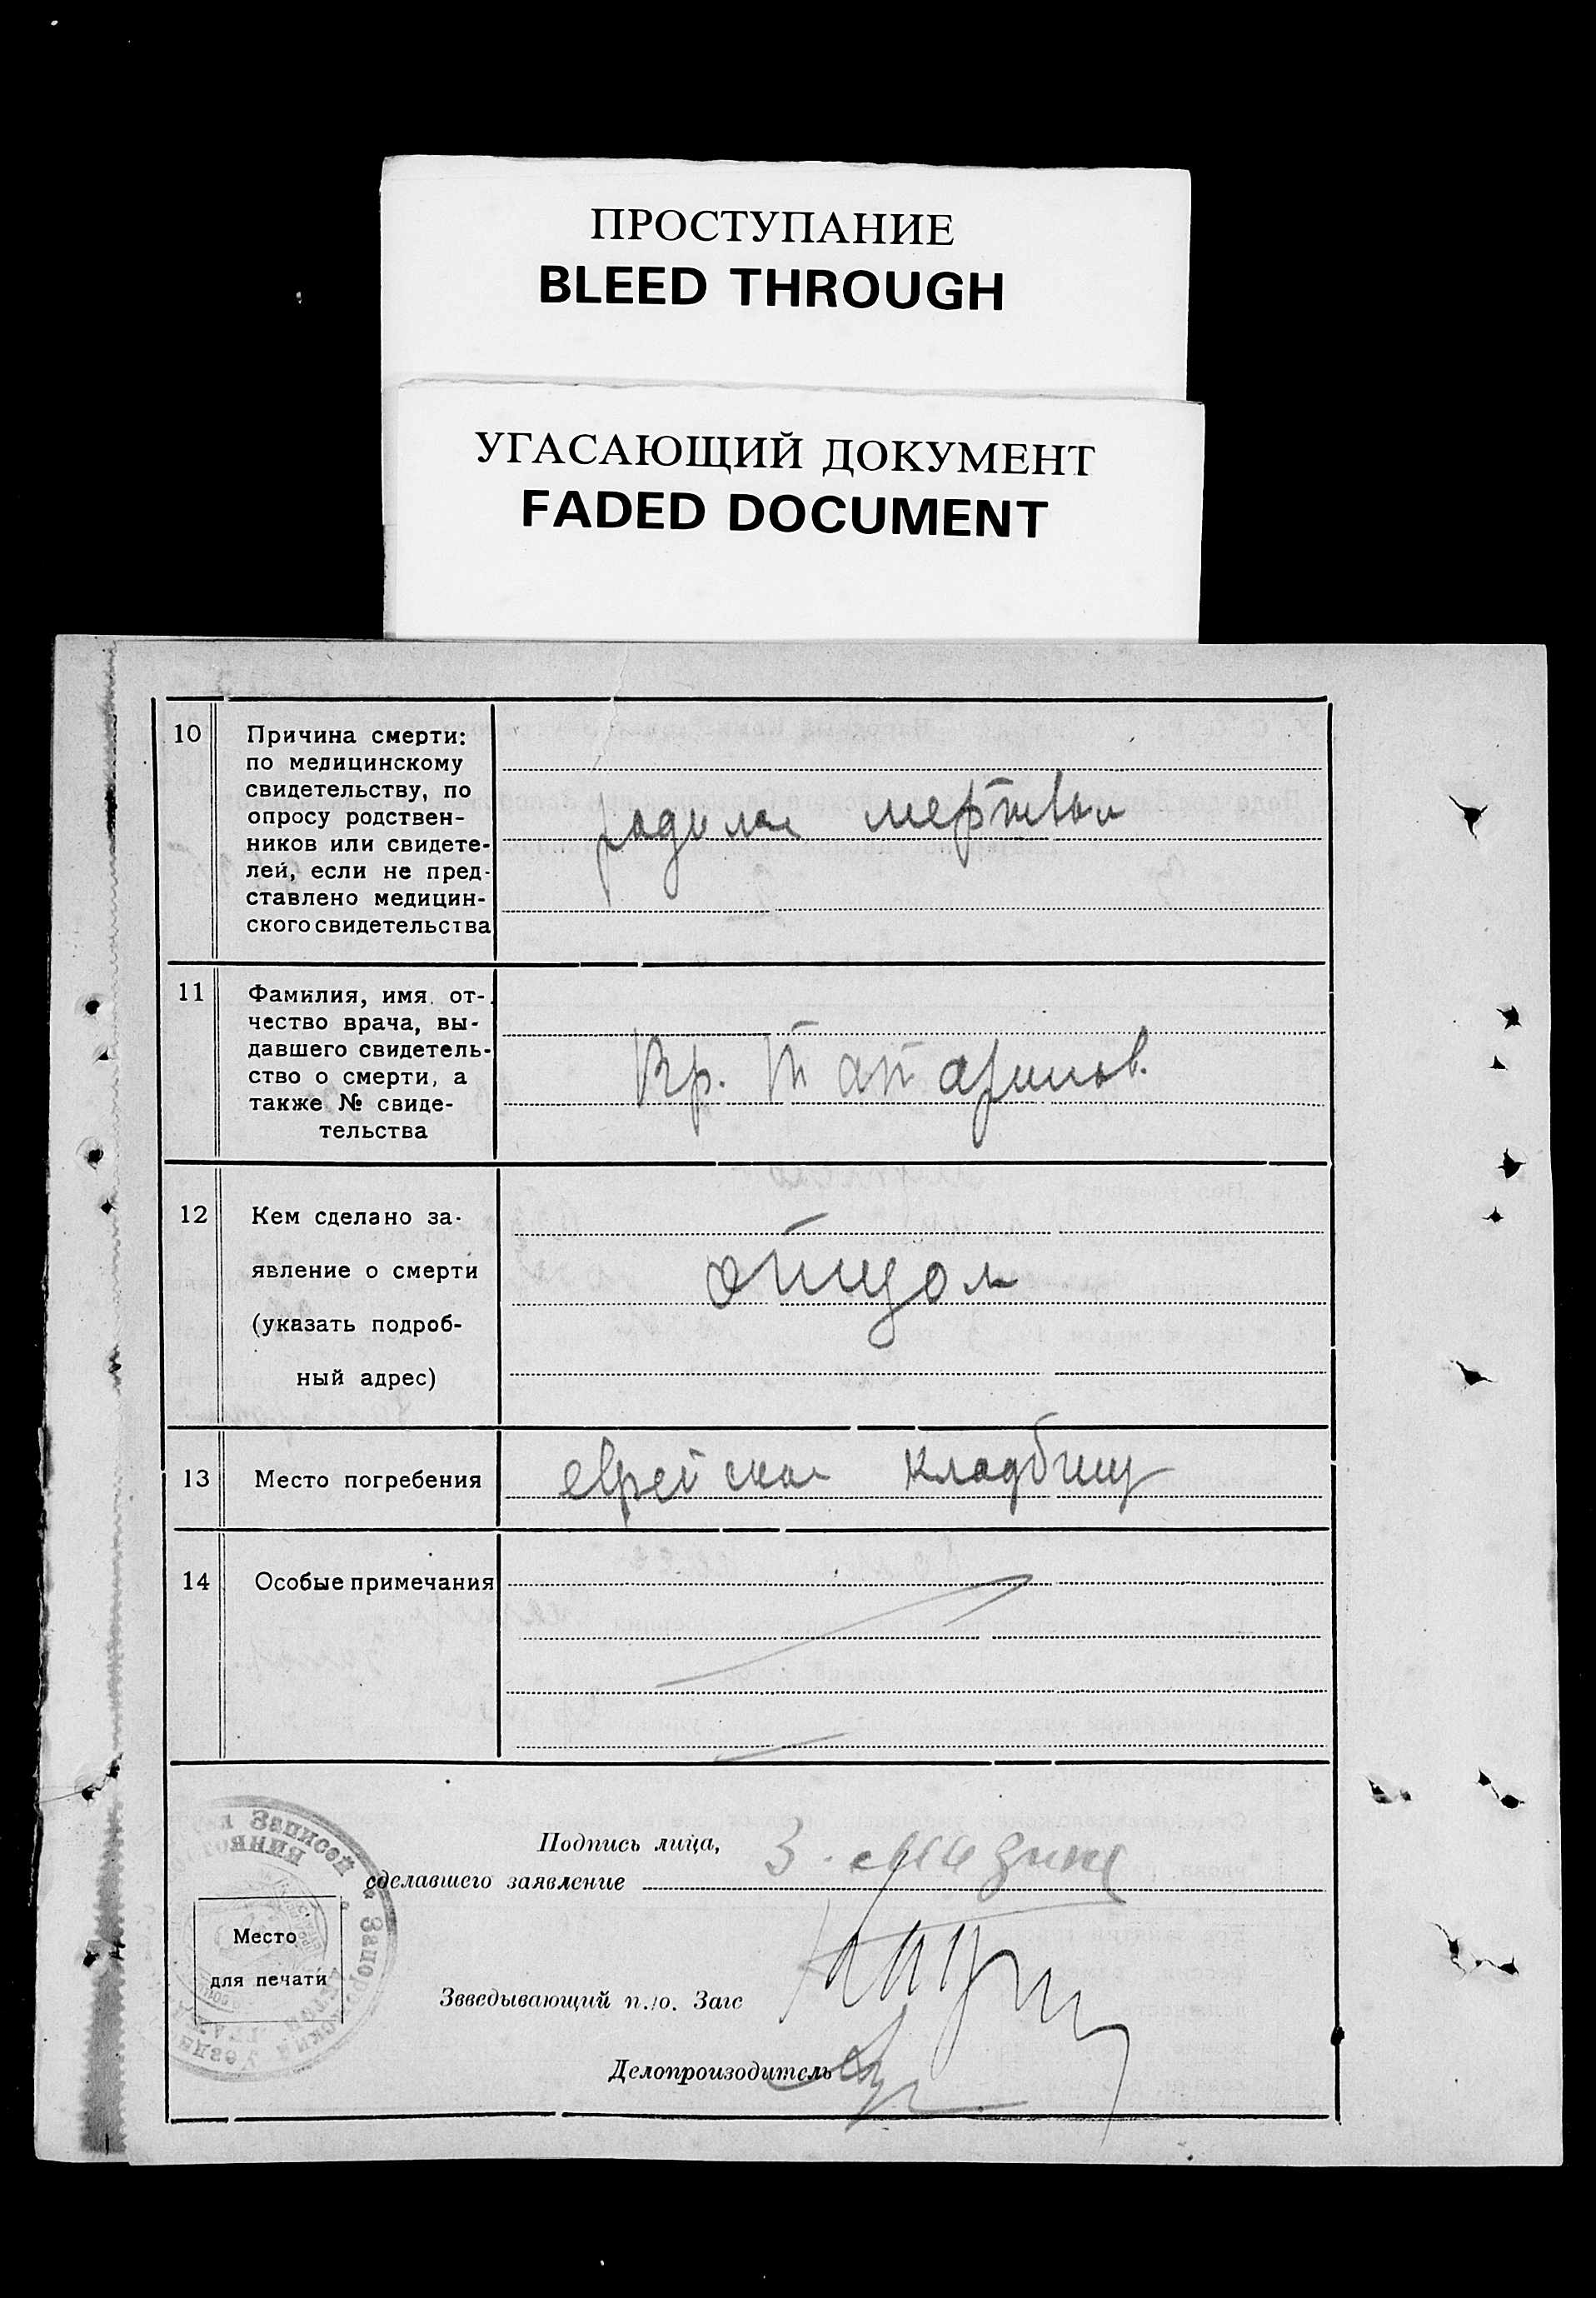 ПРОСТУПАНИЕ
BLEED THROUGH
УГАСАЮЩИЙ ДОКУМЕНТ
FADED DOCUMENT
10
Причина смерти:
по медицинскому
свидетельству, по
опросу родствен-
ников или свидете-
лей, если не пред-
ставлено медицин-
ского свидетельства
мертвы
11
Фамилия, имя. от-
чество врача, вы-
давшего свидетель-
ство о смерти, а
также № свиде-
тельства
Вр. Татаринов.
12
Кем сделано за-
явление о смерти
(указать подроб-
ный адрес)
отцом
13
Место погребения
еврейское кладбищ
14
Особые примечания
Записей
Запорожский Уезд
Место
для печати
Подпись лица,
сделавшего заявление
З.
Звведывающий п./о. Загс
Делопроизодитель